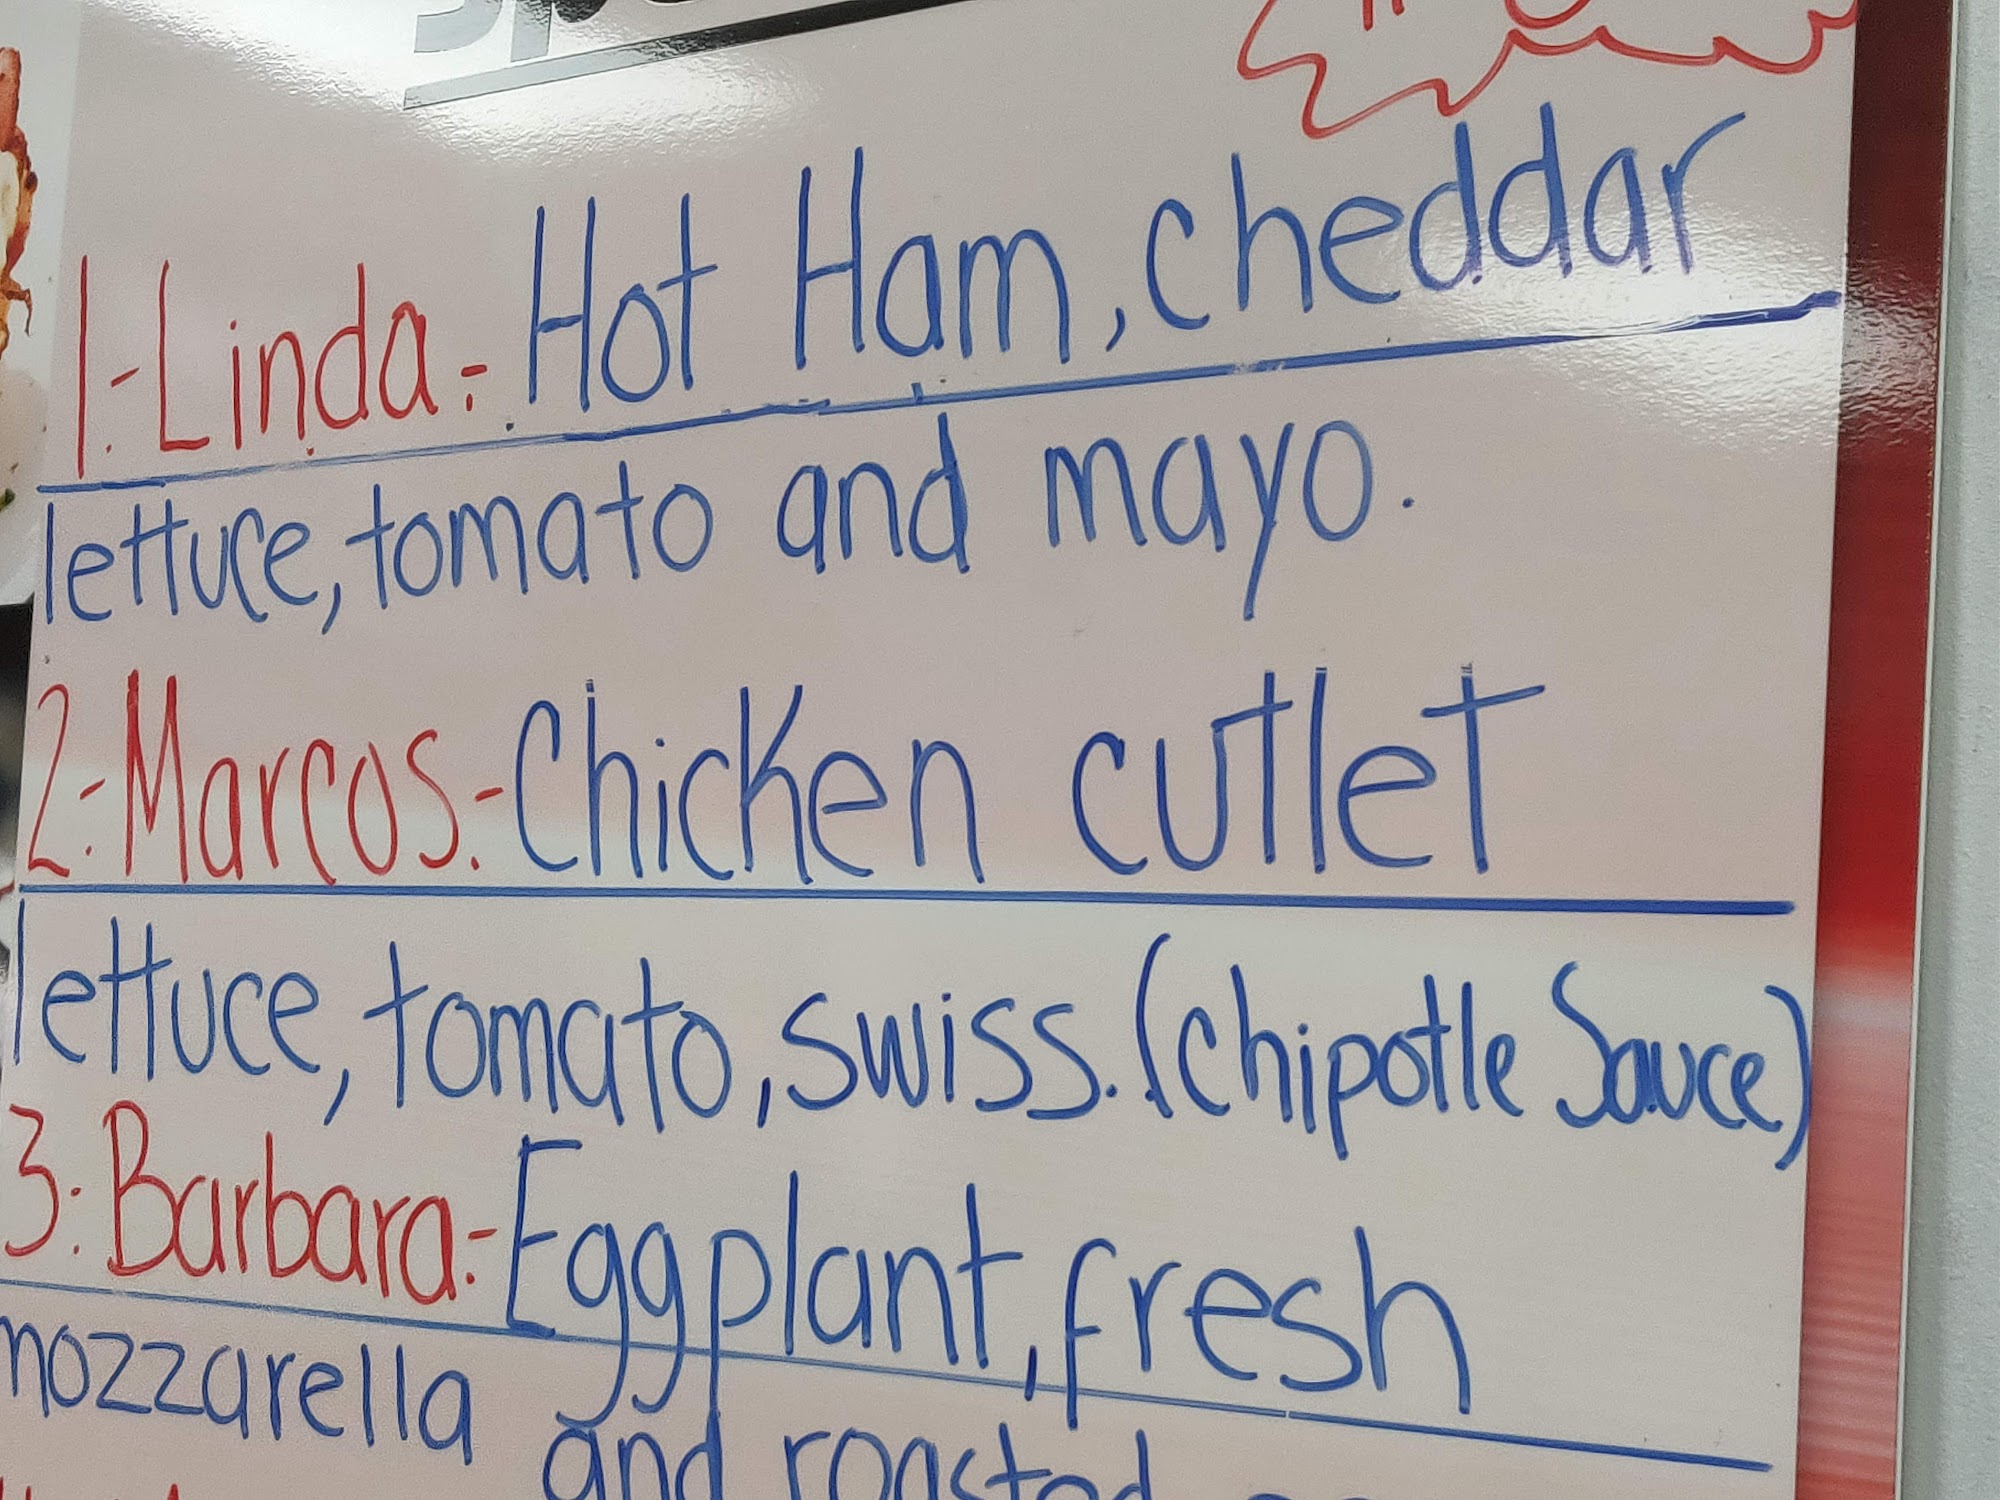 1.-Linda.- Hot Ham, cheddar
lettuce, tomato and mayo.
2.-Marcos.- Chicken cutlet
lettuce, tomato, swiss. (chipotle Sauce)
3.- Barbara.- Eggplant, fresh
mozzarella and roasted